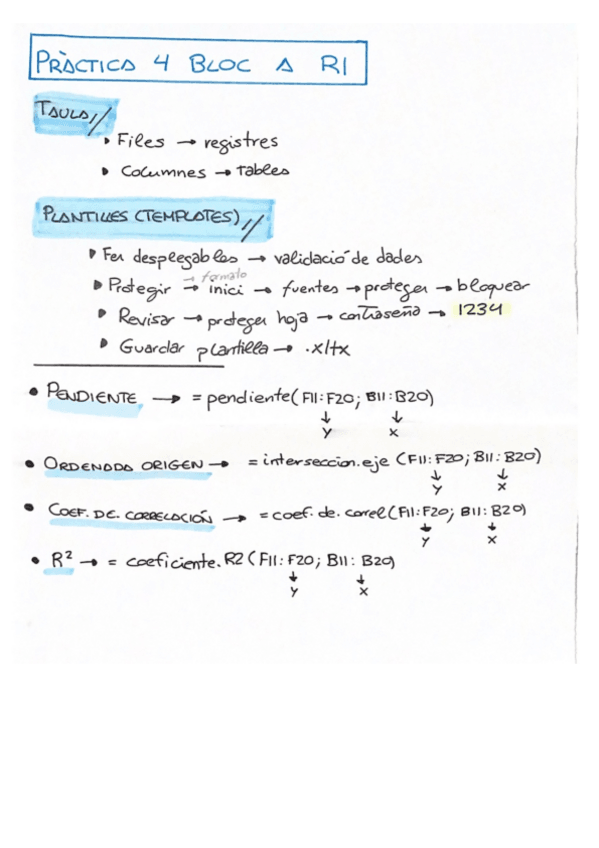 PRÀCTICA 4 BLOC A R1
TAULA//
▸ Files → registres
▸ Columnes → Tables
PLANTILLES (TEMPLATES)//
▸ Fer desplegables → validació de dades
→ formato
▸ Protegir → inici → fuentes → proteger → bloquear
▸ Revisar → proteger hoja → contraseña → 1234
▸ Guardar plantilla → .xltx
• PENDIENTE → = pendiente(F11:F20; B11:B20)
↓ ↓
y x
• ORDENADA ORIGEN → = interseccion.eje (F11:F20; B11:B20)
↓ ↓
y x
• COEF. DE. CORRELACIÓN → = coef. de. correl(F11:F20; B11:B20)
↓ ↓
y x
• R² → = coeficiente.R2 (F11:F20; B11:B20)
↓ ↓
y x